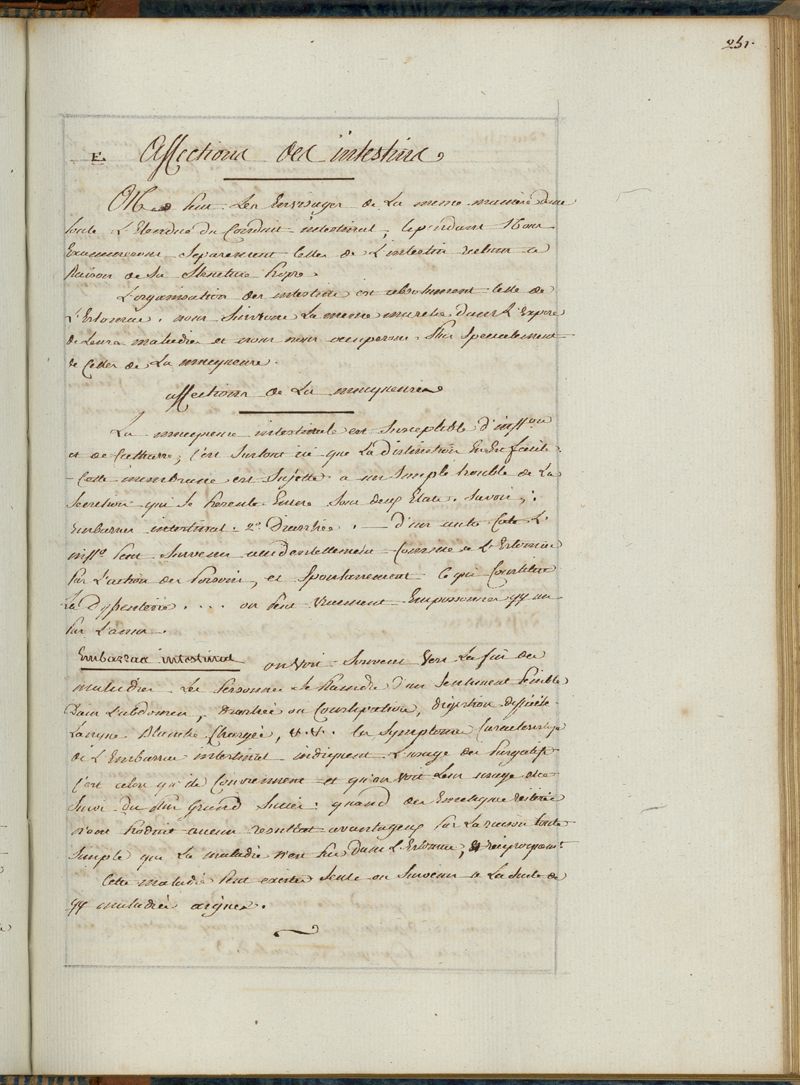 251.
E. Affections des intestins
On peut les Envisager de la meme maniere dans
toute l'Etendue du Conduit intestinal, cependant nous
Examinerons separement celles de l'intestin rectum a
Raison de sa structure propre.
L'organisation des intestins est absolument celle de
l'Estomac. nous suivrons la meme marche dans l'Exposé
de leurs maladies et nous nous occuperons plus specialement
de celles de la muqueuse.
affections de la muqueuse
La muqueuse intestinale est susceptible d'inff.on
et de Catharre; c'est surtout ici que la distinction En Est facile.
Cette membrane est sujette a un simple trouble de la
secretion qui se presente Encore sous deux Etats. savoir,:
Embarras intestinal. 2.o Diarrhée. — D'un autre Coté l'
inff.on peut survenir accidentellement Comme a l'Estomac
par l'action des poisons, et spontanement ce qui Constitue
la Dysenterie.... on peut rarement Empoisonner qq un
par l'anus.
Embarras intestinal on voit souvent vers la fin des
maladies les personnes se plaindre d'un sentiment penible
dans l'abdomen, diarrhée ou Constipation, digestion difficile
Langue Blanche Chargée, &. &. les symptomes Caracteristiques
de l'Embarras intestinal indiquent l'usage des purgatifs
c'est celui qui Convienment et qu'on voit leur usage etre
suivi du plus grand succès: quand des Emetiques réitérés
n'ont produit aucun resultat avantageux par la raison toute
simple que la maladie n'est pas dans l'Estomac, & reciproquement
Cette maladie peut exister seule ou survenir a la suite de
qq maladies aigues.